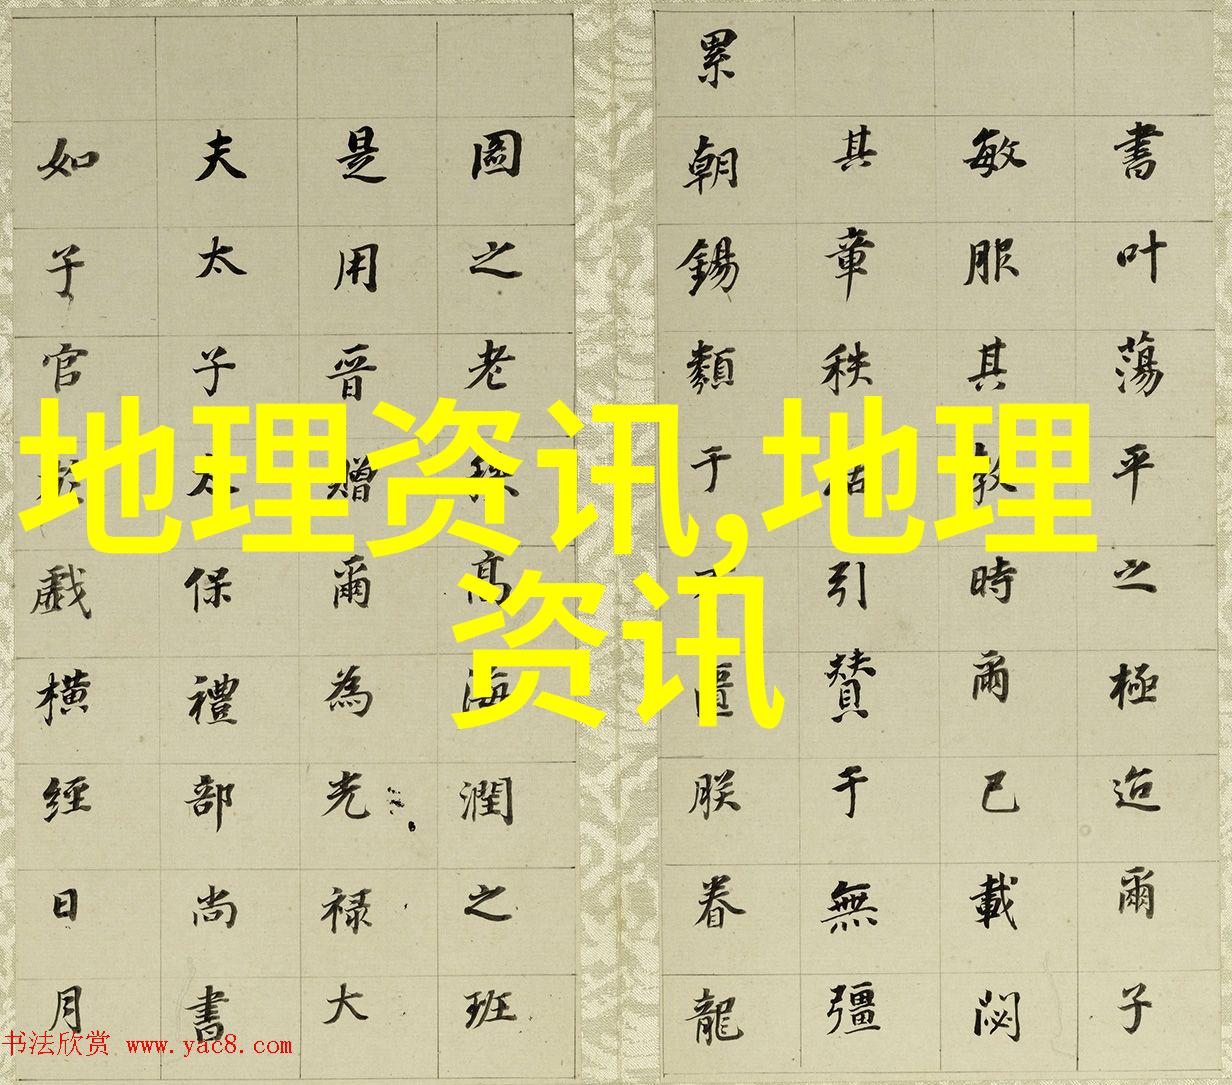 書叶蕩平之極迨爾子
敏服其教時爾已載閟
其章秩引賛于無彊
累朝錫類于匱朕眷龍
圖之老高海潤之班
是用晉贈爾為光禄大
夫太子太保禮部尚書
如子官戲橫經日月
地理资讯,地理
资讯
书法欣赏 www.yac8.com